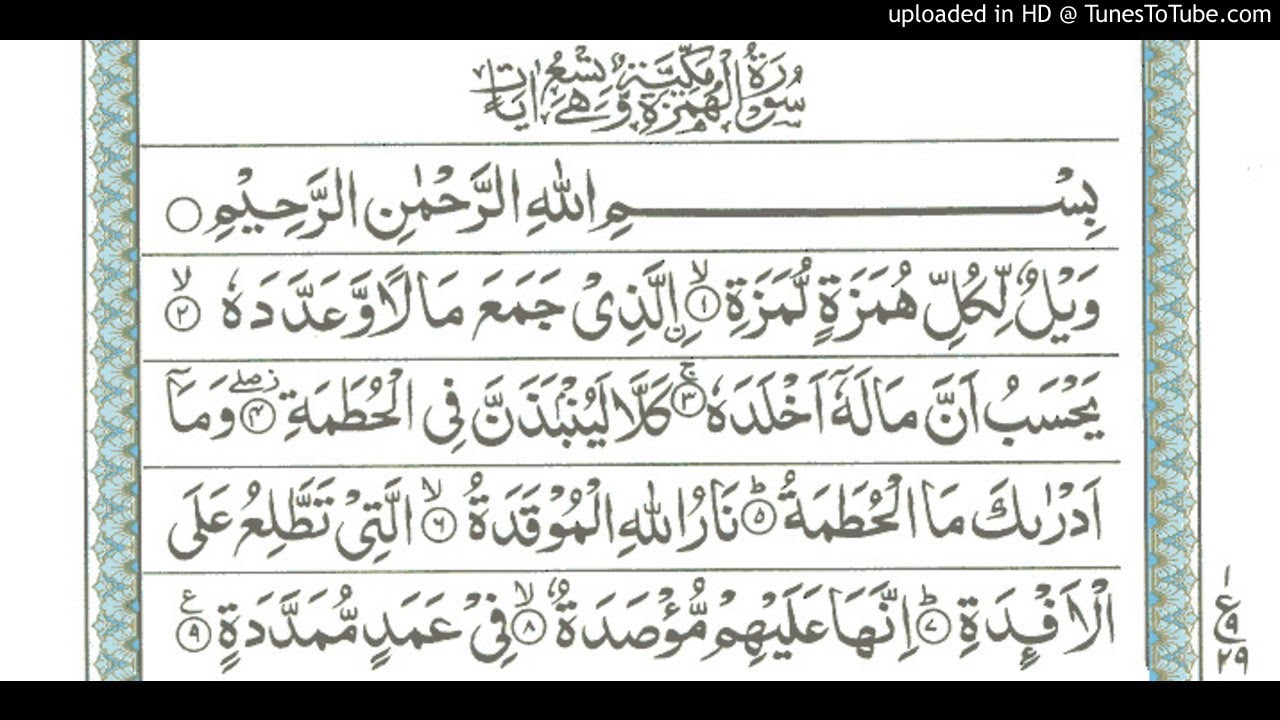 uploaded in HD @ TunesToTube.com
سُوْرَةُ الْهُمَزَةِ مَكِّيَّةٌ وَّهِيَ تِسْعُ اٰيَاتٍ
بِسْمِ اللهِ الرَّحْمٰنِ الرَّحِيْمِ
وَيْلٌ لِّكُلِّ هُمَزَةٍ لُّمَزَةِ ۙ﴿۱﴾ ِۨالَّذِىْ جَمَعَ مَالًا وَّعَدَّدَهٗ ۙ﴿۲﴾
يَحْسَبُ اَنَّ مَالَهٗٓ اَخْلَدَهٗ ۚ﴿۳﴾ كَلَّا لَيُنْۢبَذَنَّ فِى الْحُطَمَةِ ۖ﴿۴﴾ وَمَآ
اَدْرٰىكَ مَا الْحُطَمَةُ ؕ﴿۵﴾ نَارُ اللهِ الْمُوْقَدَةُ ۙ﴿۶﴾ الَّتِىْ تَطَّلِعُ عَلَى
الْاَفْـِٕدَةِ ؕ﴿۷﴾ اِنَّهَا عَلَيْهِمْ مُّؤْصَدَةٌ ۙ﴿۸﴾ فِىْ عَمَدٍ مُّمَدَّدَةٍ ﴿۹﴾ ع
۱
ع
۹
۲۹